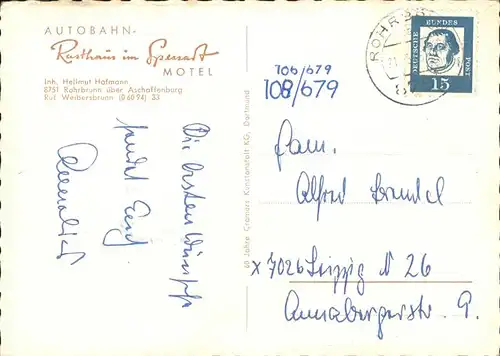 AUTOBAHN-
Rasthaus im Spessart
MOTEL
Inh. Hellmut Hofmann
8751 Rohrbrunn über Aschaffenburg
Ruf Weibersbrunn (0 60 94) 33
Die besten Wünsche
sendet Euch
106/679
108/679
60 Jahre Cramers Kunstanstalt KG, Dortmund
ROHRB
DEUTSCHE BUNDES POST
15
Fam.
Alfred
x 7026 Leipzig N 26
Annabergerstr. 9.